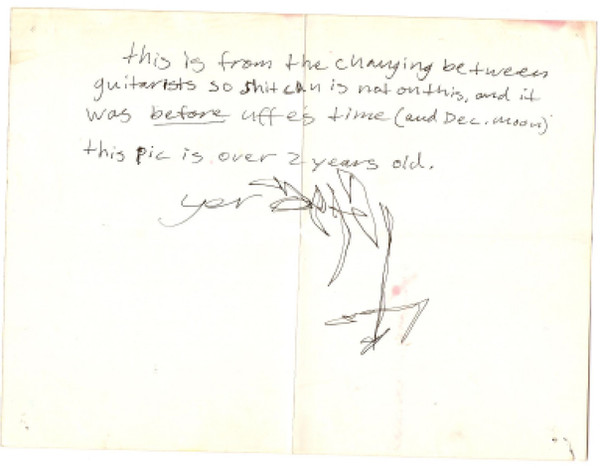 this is from the changing between
guitarists so shitcan is not on this, and it
was before uffe's time (and Dec. moon)
this pic is over 2 years old.
yer